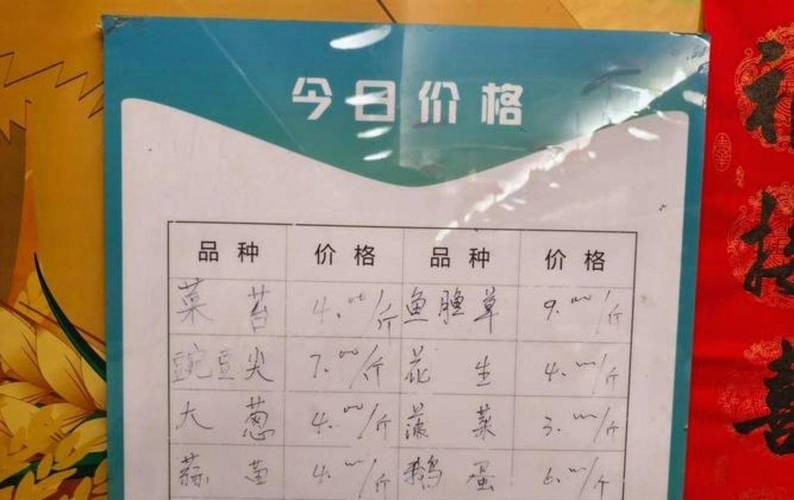 今日价格
品种 价格 品种 价格
菜苔 4.00/斤 鱼腥草 9.00/斤
豌豆尖 7.00/斤 花生 4.00/斤
大葱 4.00/斤 菠菜 3.00/斤
蒜苗 4.00/斤 鹅蛋 6.00/斤
福
接
喜